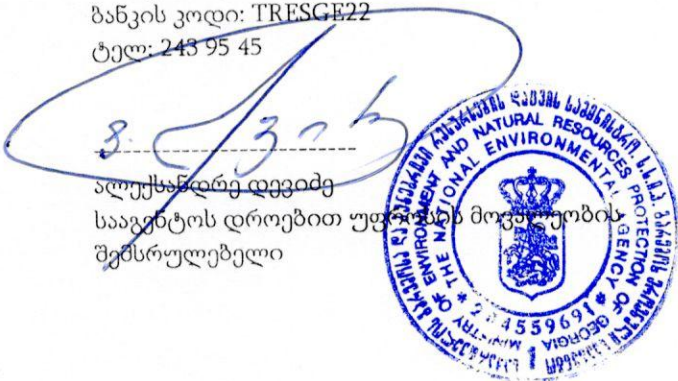 ბანკის კოდი: TRESGE22
ტელ: 243 95 45
ალექსანდრე დევიძე
სააგენტოს დროებით უფროსის მოვალეობის
შემსრულებელი
MINISTRY OF ENVIRONMENT AND NATURAL RESOURCES PROTECTION OF GEORGIA
THE NATIONAL ENVIRONMENTAL AGENCY
1